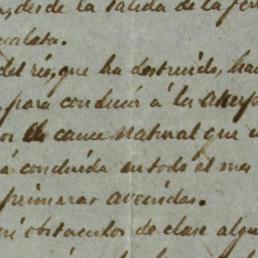 , desde la salida de la fer
valata.
del rio, que ha destruido, hac
para conducir á la acerp
or de cauce natural que
á concluida en todo el mes
primeras avenidas.
ni obstaculos de clase algu